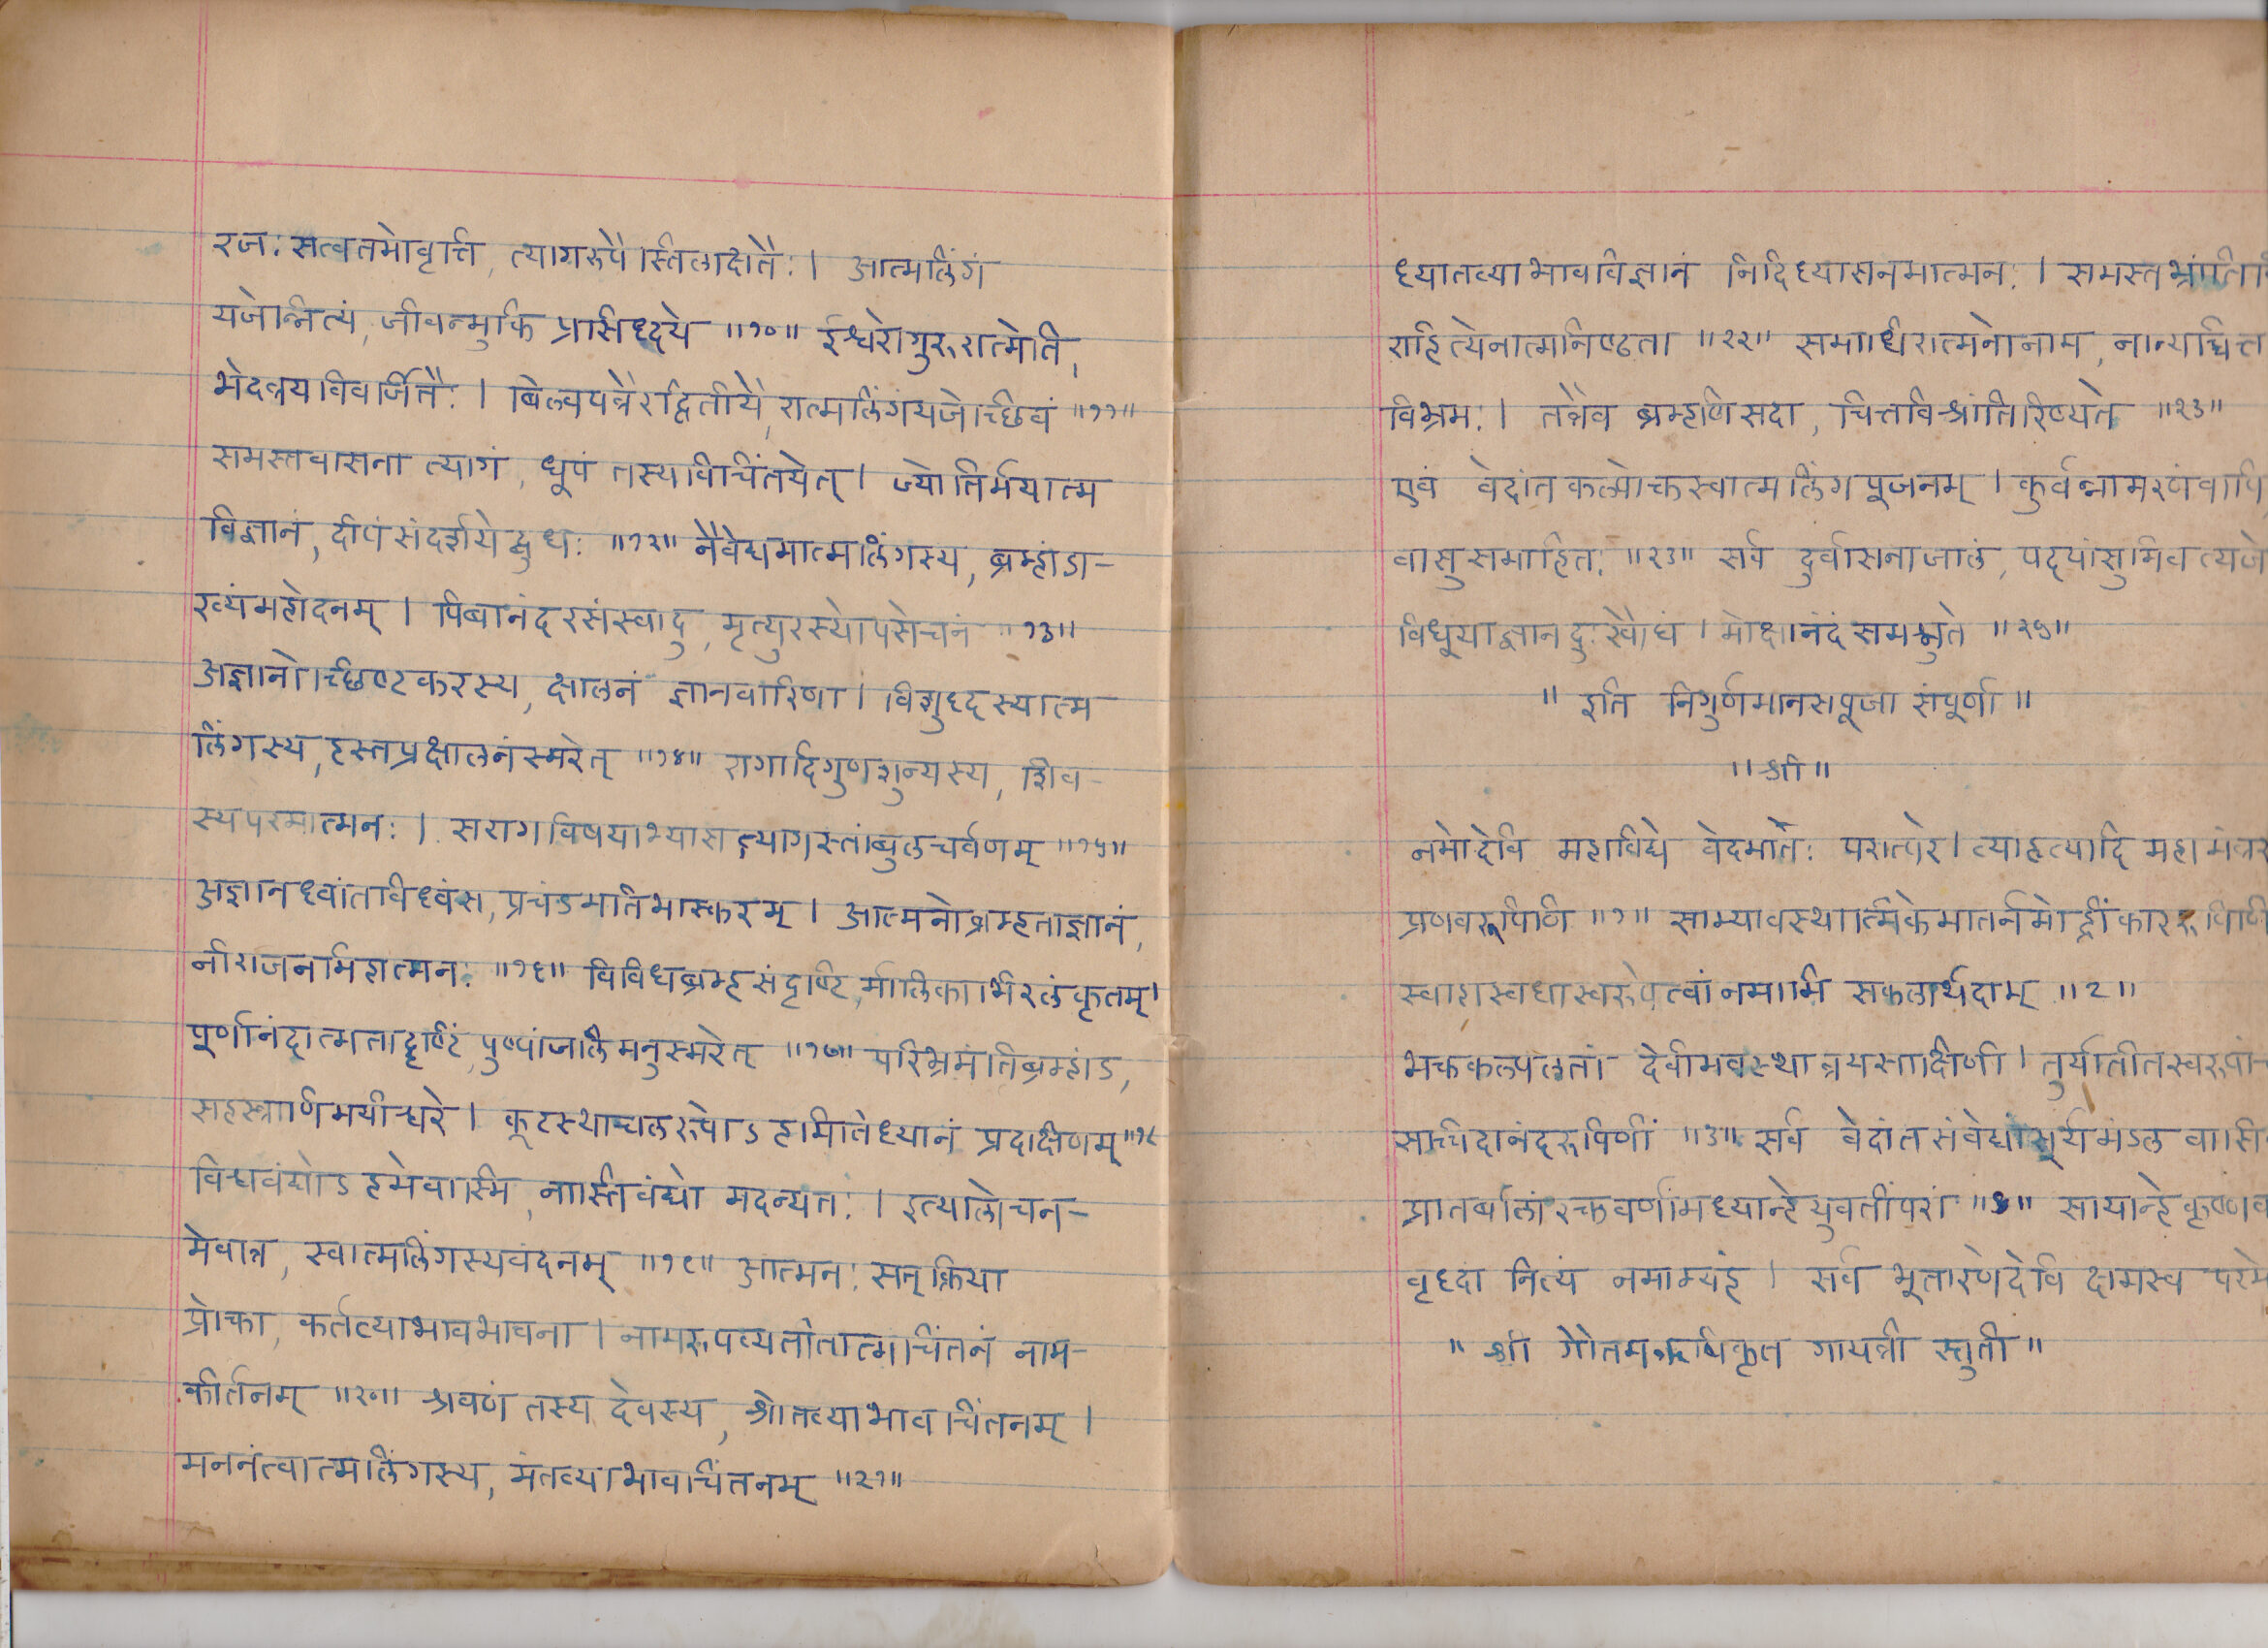 रज: सत्वतमोवृत्ति, त्यागरूपैस्तिलाक्षतै: । आत्मलिंगं
यजेन्नित्यं, जीवन्मुक्ति प्रसिध्दये ॥१०॥ ईश्वरोगुरुरात्मेति,
भेदत्रयविवर्जितै: । बिल्वपत्रैरद्वितीयै, रात्मलिंगंयजेच्छिवं ॥११॥
समस्तवासना त्यागं, धूपं तस्यविचिंतयेत् । ज्योतिर्मयात्म
विज्ञानं, दीपंसंदर्शयेद्बुध: ॥१२॥ नैवेद्यमात्मलिंगस्य, ब्रम्हांडा-
ख्यंमहोदनम् । पिबानंदरसंस्वादु, मृत्युरस्योपसेचनं ॥१३॥
अज्ञानोच्छिष्टकरस्य, क्षालनं ज्ञानवारिणा । विशुध्दस्यात्म
लिंगस्य, हस्तप्रक्षालनंस्मरेत् ॥१४॥ रागादिगुणशुन्यस्य, शिव-
स्यपरमात्मन: । सरागविषयाभ्यासत्यागस्तांबुलचर्वणम् ॥१५॥
अज्ञानध्वांतविध्वंस, प्रचंडमतिभास्करम् । आत्मनोब्रम्हताज्ञानं,
नीराजनमिहात्मन: ॥१६॥ विविधब्रम्हसंदृष्टि, र्मालिकाभिरलंकृतम्।
पूर्णानंदात्मतादृष्टिं, पुष्पांजलिमनुस्मरेत् ॥१७॥ परिभ्रमंतिब्रम्हांड,
सहस्त्राणिमयीश्वरे । कूटस्थाचलरूपोऽहमितिध्यानं प्रदक्षिणम् ॥१८
विश्ववंद्योऽहमेवास्मि, नास्तिवंद्यो मदन्यत: । इत्यालोचन-
मेवात्र, स्वात्मलिंगस्यवंदनम् ॥१९॥ आत्मन: सत्क्रिया
प्रोक्ता, कर्तव्याभावभावना । नामरूपव्यतीतात्मचिंतनं नाम-
कीर्तनम् ॥२०॥ श्रवणं तस्य देवस्य, श्रोतव्याभावचिंतनम् ।
मननंत्वात्मलिंगस्य, मंतव्याभावचिंतनम् ॥२१॥
ध्यातव्याभावविज्ञानं निदिध्यासनमात्मन: । समस्तभ्रांति
राहित्येनात्मनिष्ठता ॥२२॥ समाधिरात्मनोनाम, नान्यच्चित्त
विभ्रम: । तत्रैव ब्रम्हणिसदा, चित्तविश्रांतिरिष्यते ॥२३॥
एवं वेदांतकल्पोक्तस्वात्मलिंगपूजनम् । कुर्वन्नामरणंवापि
वासुसमाहित: ॥२३॥ सर्व दुर्वासनाजालं, पद्पांसुमिवत्यजे
विधूयाज्ञानदु:खौघं । मोक्षानंदंसमश्नुते ॥२५॥
॥ इति निगुर्णमानसपूजा संपूर्णा ॥
॥श्री॥
नमोदेवि महाविद्ये वेदमाते: परात्परे । व्याहृत्यादि महामंत्र
प्रणवरूपिणि ॥१॥ साम्यावस्थात्मिकेमातर्नमोह्रींकाररूपिणि
स्वाहास्वधास्वरूपेत्वांनमामि सकलार्थदाम् ॥२॥
भक्तकल्पलतां देवीमवस्थात्रयसाक्षिणी । तुर्यातीतस्वरूपां
सच्चिदानंदरूपिणीं ॥३॥ सर्व वेदांतसंवेद्यांसूर्यमंडल वासि
प्रातर्बालांरक्तवर्णांमध्यान्हेयुवतींपरां ॥४॥ सायान्हेकृष्णव
वृध्दां नित्यं नमाम्यहं । सर्व भूतारणेदेवि क्षमस्व परमे
॥ श्री गौतमऋषिकृत गायत्री स्तुती ॥